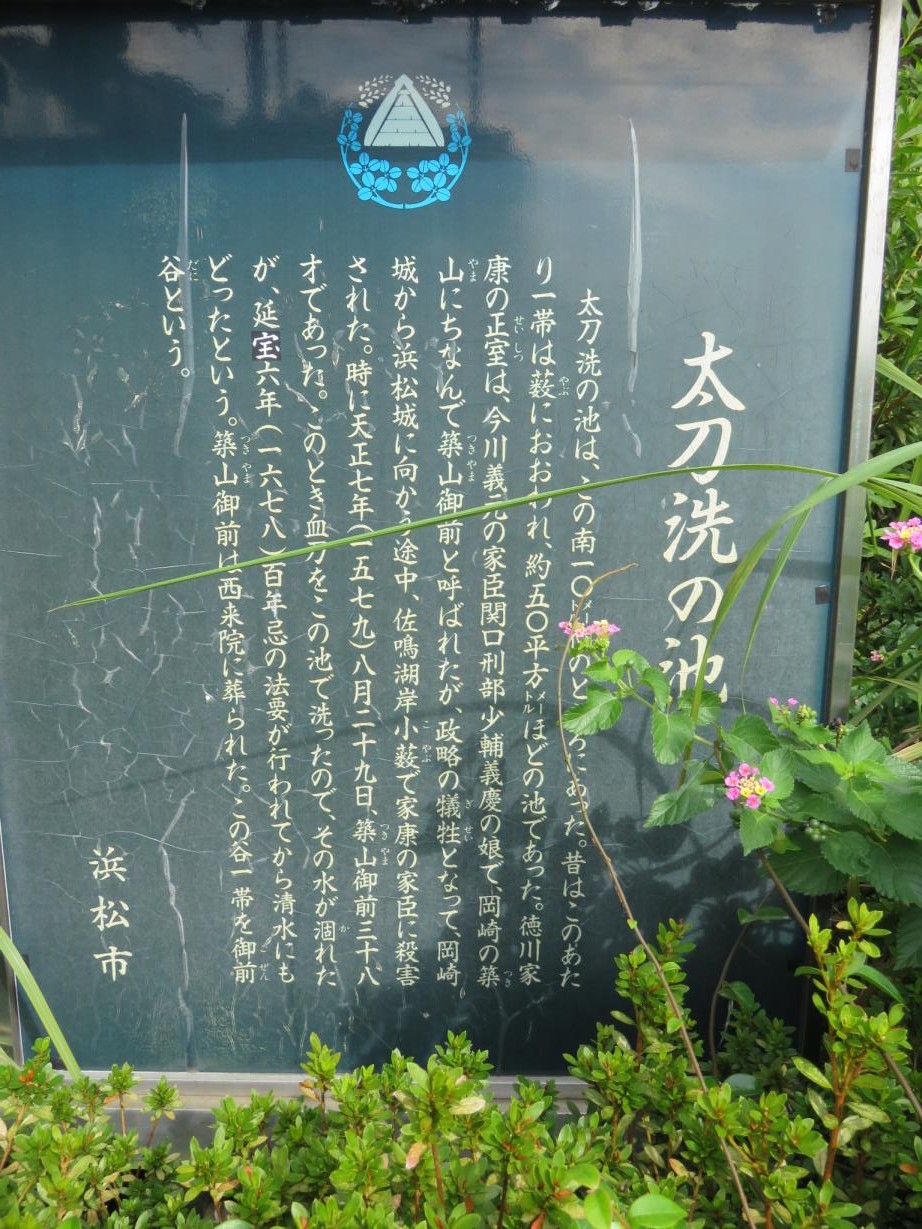 太刀洗の池
太刀洗の池は、この南一〇のところにあった。昔はこのあた
り一帯は薮におおわれ、約五〇平方メートルほどの池であった。徳川家
康の正室は、今川義元の家臣関口刑部少輔義慶の娘で、岡崎の築
山にちなんで築山御前と呼ばれたが、政略の犠牲となって、岡崎
城から浜松城に向かう途中、佐鳴湖岸小薮で家康の家臣に殺害
された。時に天正七年(一五七九)八月二十九日、築山御前三十八
才であった。このとき血刀をこの池で洗ったので、その水が涸れた
が、延宝六年(一六七八)百年忌の法要が行われてから清水にも
どったという。築山御前は西来院に葬られた。この谷一帯を御前
谷という。
浜松市